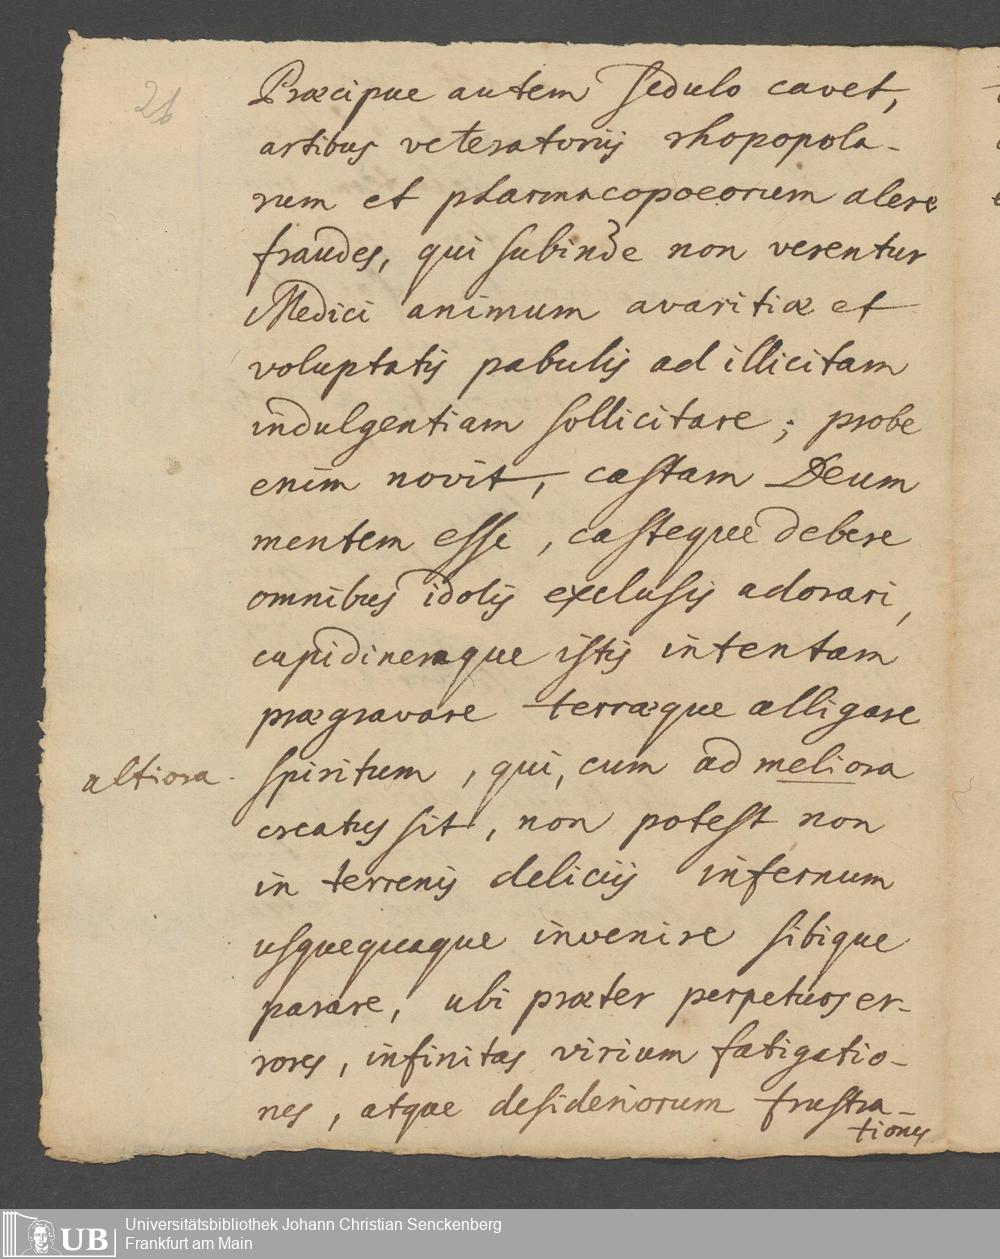 26
Præcipue autem sedulo cavet,
artibus veteratoriis rhopopola-
rum et pharmacopoeorum alere
fraudes, qui subinde non verentur
Medici animum avaritiæ et
voluptatis pabulis ad illicitam
indulgentiam sollicitare; probe
enim novit, castam Deum
mentem esse, casteque debere
omnibus idolis exclusis adorari,
cupidinemque istis intentam
prægravare terræque alligare
altiora. spiritum, qui, cum ad meliora
creatus sit, non potest non
in terrenis deliciis infernum
usquequaque invenire sibique
parare, ubi præter perpetuos er-
rores, infinitas virium fatigatio-
nes, atque desideriorum frustra-
tiones
UB Universitätsbibliothek Johann Christian Senckenberg
Frankfurt am Main